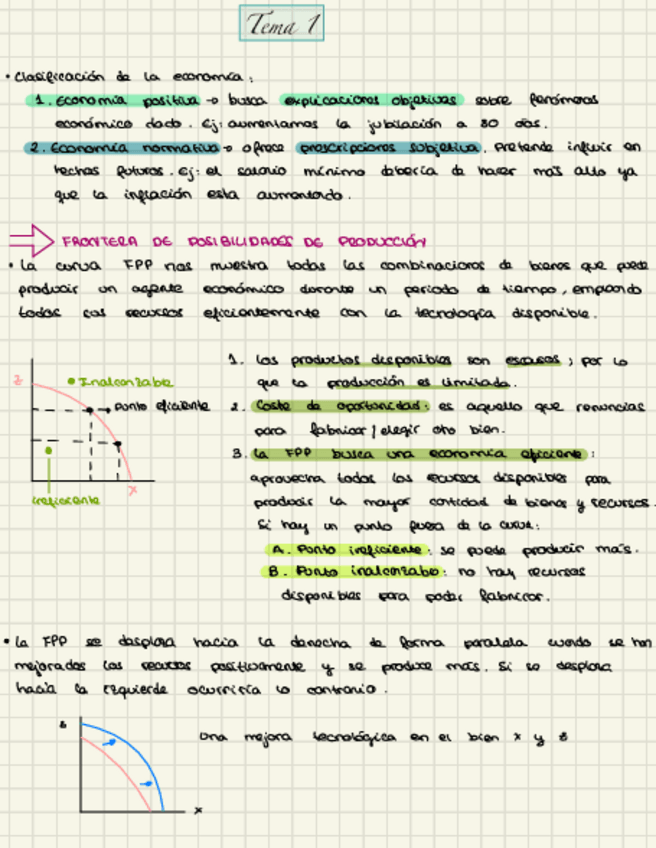 Tema 1
• Clasificación de la economía:
1. Economía positiva → busca explicaciones objetivas sobre fenómenos
económico dado. Ej: aumentamos la jubilación a 80 años.
2. Economía normativa → ofrece prescripciones subjetiva. Pretende influir en
hechos futuros. Ej: el salario mínimo debería de hacer más alto ya
que la inflación esta aumentando.
FRONTERA DE POSIBILIDADES DE PRODUCCIÓN
• La curva FPP nos muestra todas las combinaciones de bienes que puede
producir un agente económico durante un periodo de tiempo, empleando
todos sus recursos eficientemente con la tecnología disponible.
z
• Inalcanzable
Punto eficiente
ineficiente
x
1. Los productos disponibles son escasos; por lo
que la producción es limitada.
2. Coste de oportunidad: es aquello que renuncias
para fabricar/elegir otro bien.
3. La FPP busca una economía eficiente:
aprovecha todos los recursos disponibles para
producir la mayor cantidad de bienes y recursos.
Si hay un punto fuera de la curva:
A. Punto ineficiente: se puede producir más.
B. Punto inalcanzable: no hay recursos
disponibles para poder fabricar.
• La FPP se desplaza hacia la derecha de forma paralela cuando se han
mejorados los recursos positivamente y se produce más. Si se desplaza
hacia la izquierda ocurriría lo contrario.
z
Una mejora tecnológica en el bien x y z
x